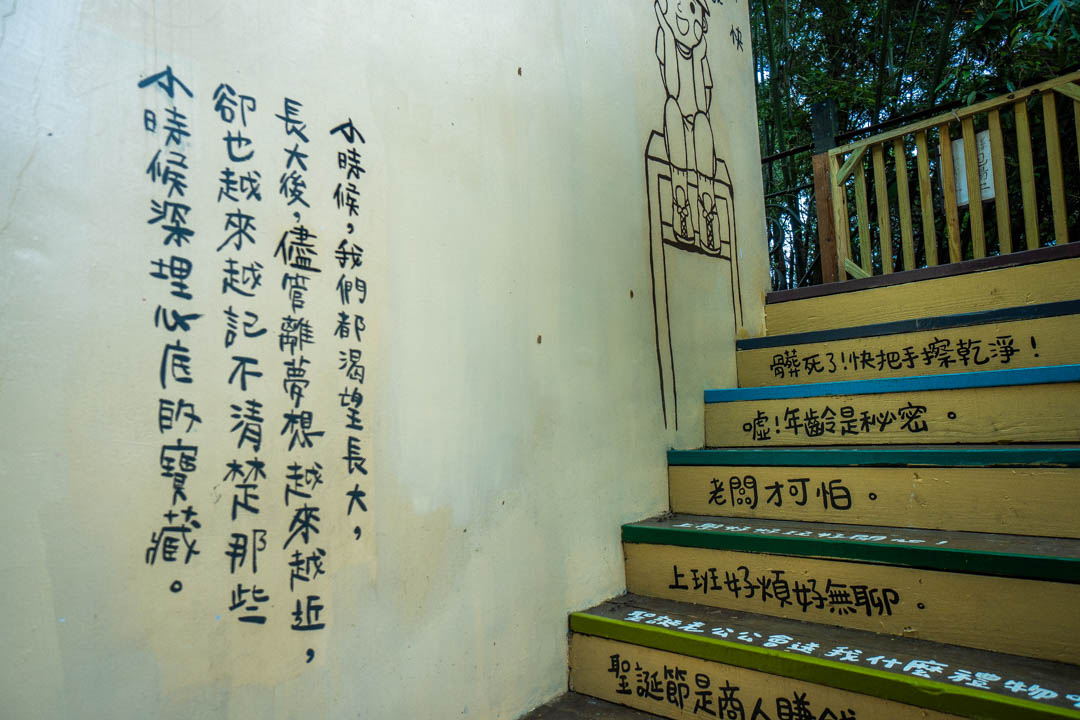 小時候，我們都渴望長大，
長大後，儘管離夢想越來越近，
卻也越來越記不清楚那些
小時候深埋心底的寶藏。
快
髒死了！快把手擦乾淨！
噓！年齡是秘密。
老闆才可怕。
上班好煩好無聊。
聖誕老公公會送我什麼禮物
聖誕節是商人賺錢